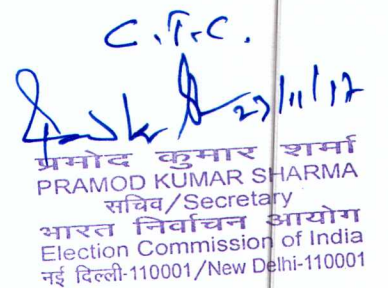 C.T.C.
23/11/17
प्रमोद कुमार शर्मा
PRAMOD KUMAR SHARMA
सचिव/Secretary
भारत निर्वाचन आयोग
Election Commission of India
नई दिल्ली-110001/New Delhi-110001